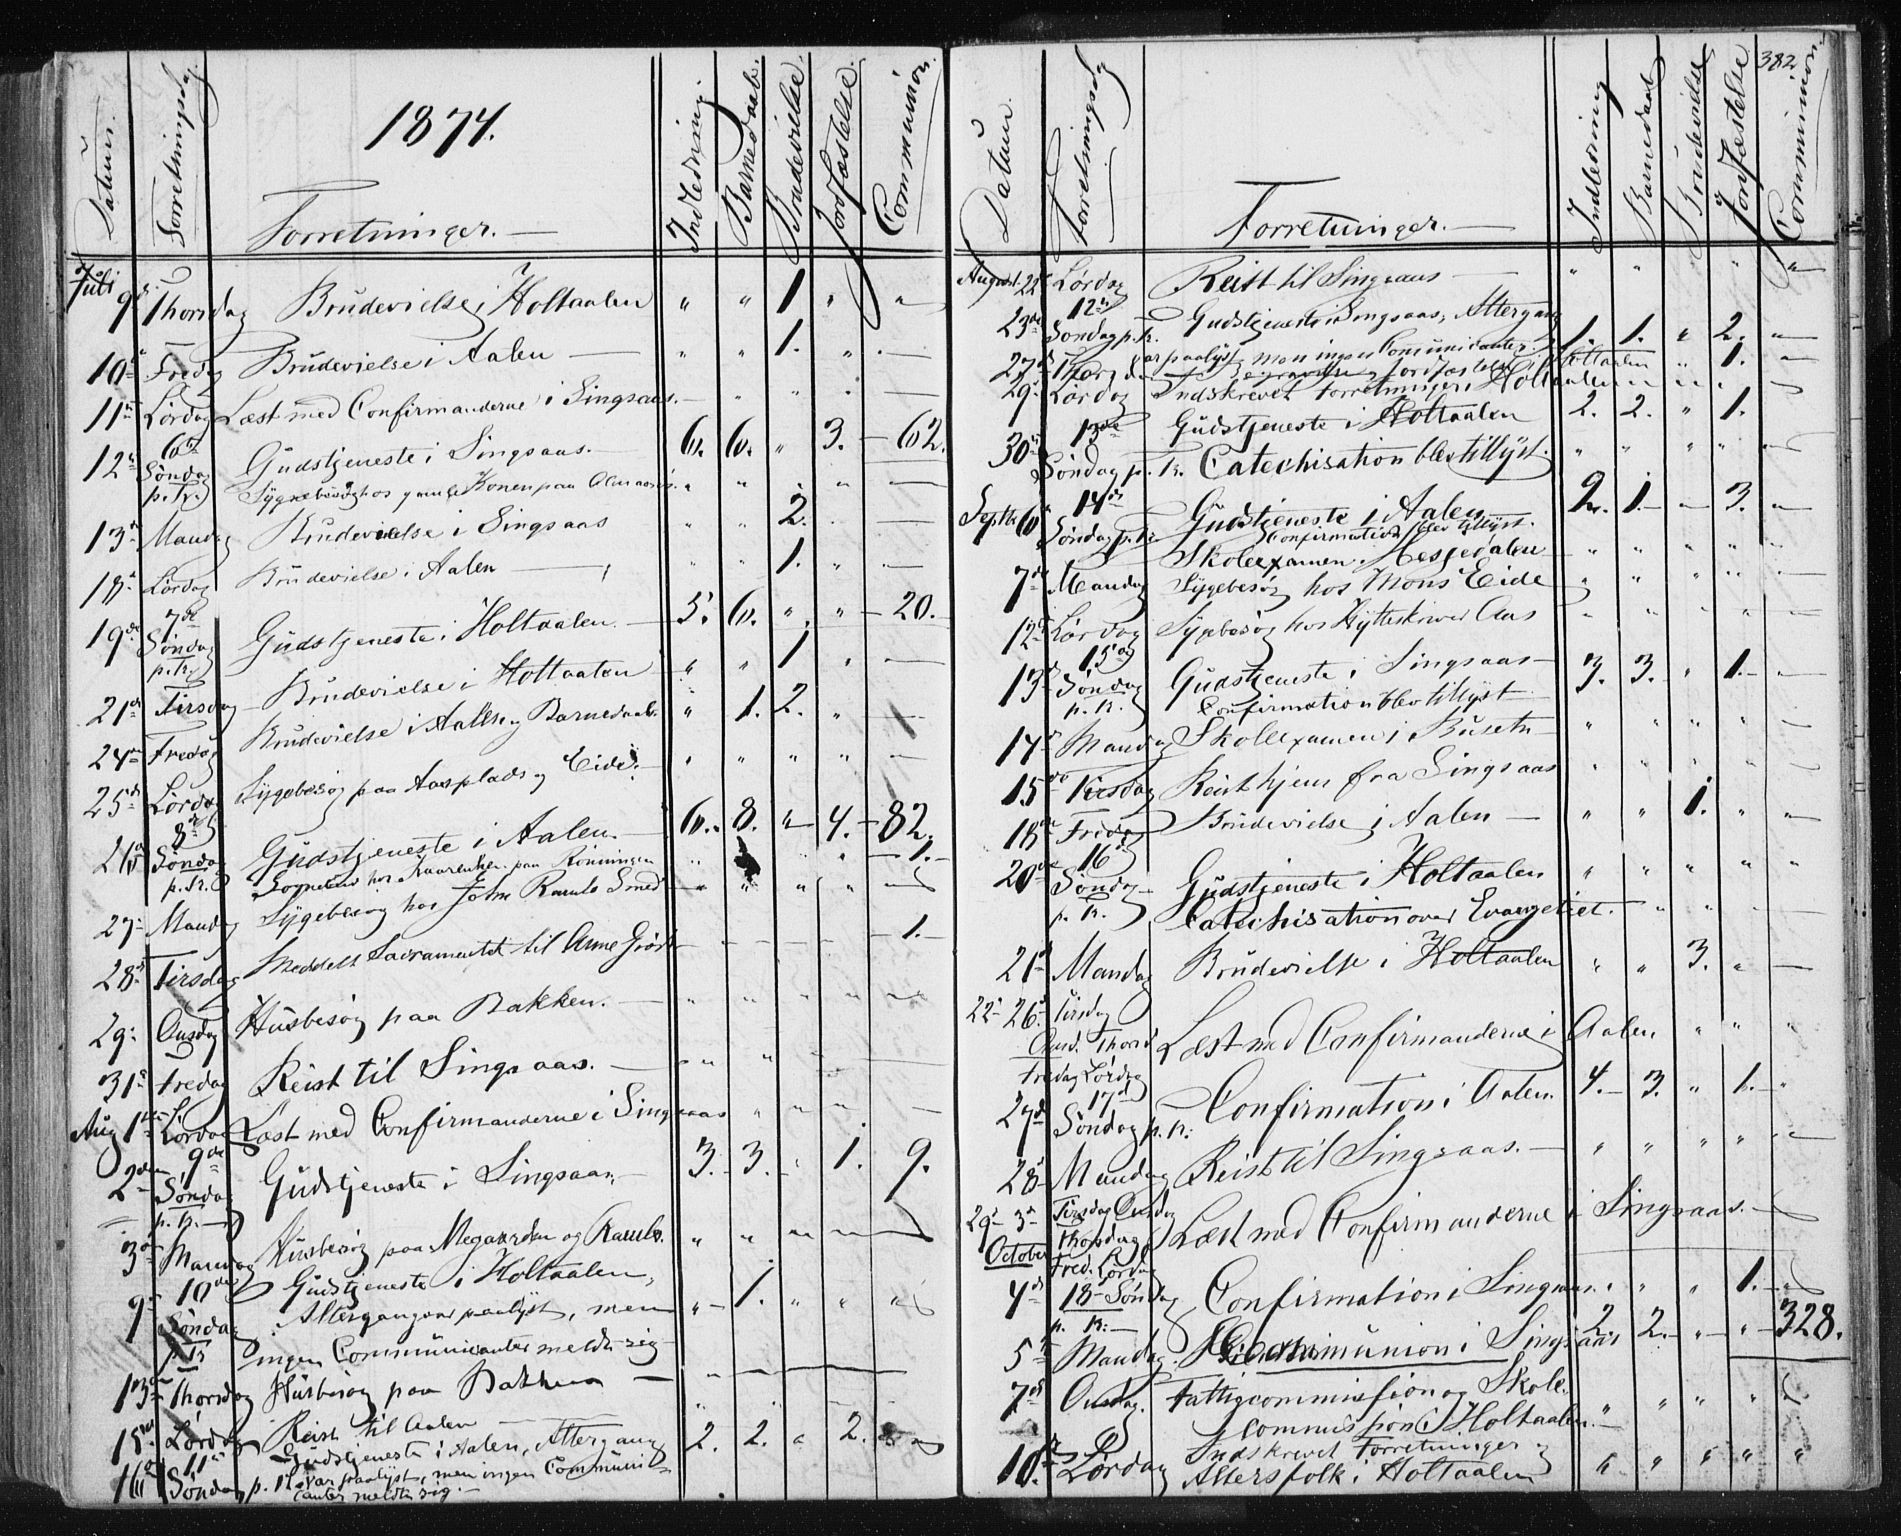 1874.
Datum. Forretningsdag. Forretninger. Indledning. Barnedaab. Brudevielse. Jordfæstelse. Communion.
Juli 9de Thorsdag Brudevielse i Holtaalen " " 1 " "
10de Fredag Brudevielse i Aalen — " " 1. " —
11te Lørdag Læst med Confirmanderne i Singsaas. — " " " —
12te 6te Søndag p. Tr. Gudstjeneste i Singsaas. — 6. 6. " 3. 62.
Sygebesøg hos gamle Konen paa
13de Mandag Brudevielse i Singsaas " " 2. —
18de Lørdag Brudevielse i Aalen — " " 1. " —
19de 7de Søndag p. Tr. Gudstjeneste i Holtaalen. — 5. 6. " " 20.
21de Tirsdag Brudevielse i Holtaalen — " " 1 " —
24de Fredag Brudevielse i Aalen og Barnedaab. " 1. 2. " —
25de Lørdag Sygebesøg paa Aasplads og Eide. — " " " " —
26de 8de Søndag p. Tr. Gudstjeneste i Aalen. — 6. 8. " 4. 82.
Sognebud hos paa Rønningen " " " 1.
27de Mandag Sygebesøg hos John Ramlo Smed " " " " "
28de Tirsdag Meddelt Sacramentet til Anne — — — — 1.
29de Onsdag Husbesøg paa Bakken. — " " " " "
31te Fredag Reist til Singsaas. — " " " —
Aug 1ste Lørdag Læst med Confirmanderne i Singsaas " " " —
2den 9de Søndag p. Tr. Gudstjeneste i Singsaas. 3. 3. " 1. 9.
3die Mandag Husbesøg paa Megaarden og Ramlo. " " " " —
9de 10de Søndag p. Tr. Gudstjeneste i Holtaalen,
Altergang var paalyst, men " 1. " " "
ingen Communicanter meldte sig
13de Thorsdag Husbesøg paa Bakken —
15de Lørdag Reist til Aalen
16de 11te Søndag p. Tr. Gudstjeneste i Aalen, Altergang 2. 2. " 2. "
var paalyst, men ingen Communi-
canter meldte sig. —
382
Datum. Forretningsdag Forretninger. — Indledning Barnedaab Brudevielse Jordfæstelse Communion.
August 22de Lørdag Reist til Singsaas — " " " " "
23de 12te Søndag p. Tr. Gudstjeneste i Singsaas, Altergang
var paalyst, men ingen Comunicanter. 1. 1. " 2. —
27de Thorsdag Jordfæstelse i Holtaalen " 1. "
29de Lørdag Indskrevet Forretninger i Holtaalen " " "
30te 13de Søndag p. Tr. Gudstjeneste i Holtaalen 2. 2. " 1.
Catechisation blev tillyst. " " " " "
Septbr 6te 14de Søndag p. Tr. Gudstjeneste i Aalen 2. 1. — 3. —
Confirmation blev tillyst.
7de Mandag Skoleexamen i Hesjedalen " " " " "
Sygebesøg hos Mons Eide " " " " —
12te Lørdag Sygebesøg hos Hytteskriver Aas " " " " —
13de 15de Søndag p. Tr. Gudstjeneste i Singsaas — 3. 3. " 1. —
Confirmation blev tillyst
14de Mandag Skoleexamen i Busetn — " " " "
15de Tirsdag Reist hjem fra Singsaas " " " " —
18de Fredag Brudevielse i Aalen — " " 1. " "
20de 16de Søndag p. Tr. Gudstjeneste i Holtaalen " " " " "
Catechisation over Evangeliet. " " —
21de Mandag Brudevielse i Holtaalen " " 3. " —
22de - 26de Tirsdag
Onsd. Thorsd Læst med Confirmanderne i Aalen " " "
Fredag Lørdag
27de 17de Søndag p. Tr. Confirmation i Aalen. 4. 3. " 1. "
28de Mandag Reist til Singsaas. — " " " " "
29de - 3de Tirsdag Onsdag
October Thorsdag Læst med Confirmanderne i Singsaas. —
Fred. Lørdag
4de 18de Søndag p. Tr. Confirmation i Singsaas. " " " 1. "
5te Mandag. Communion i Singsaas 2. 2. " " 328.
7de Onsdag. Fattigcommission og Skole-
commission i Holtaalen. — " " " "
10de Lørdag Indskrevet Forretninger og
Altersfolk i Holtaalen " " " " "